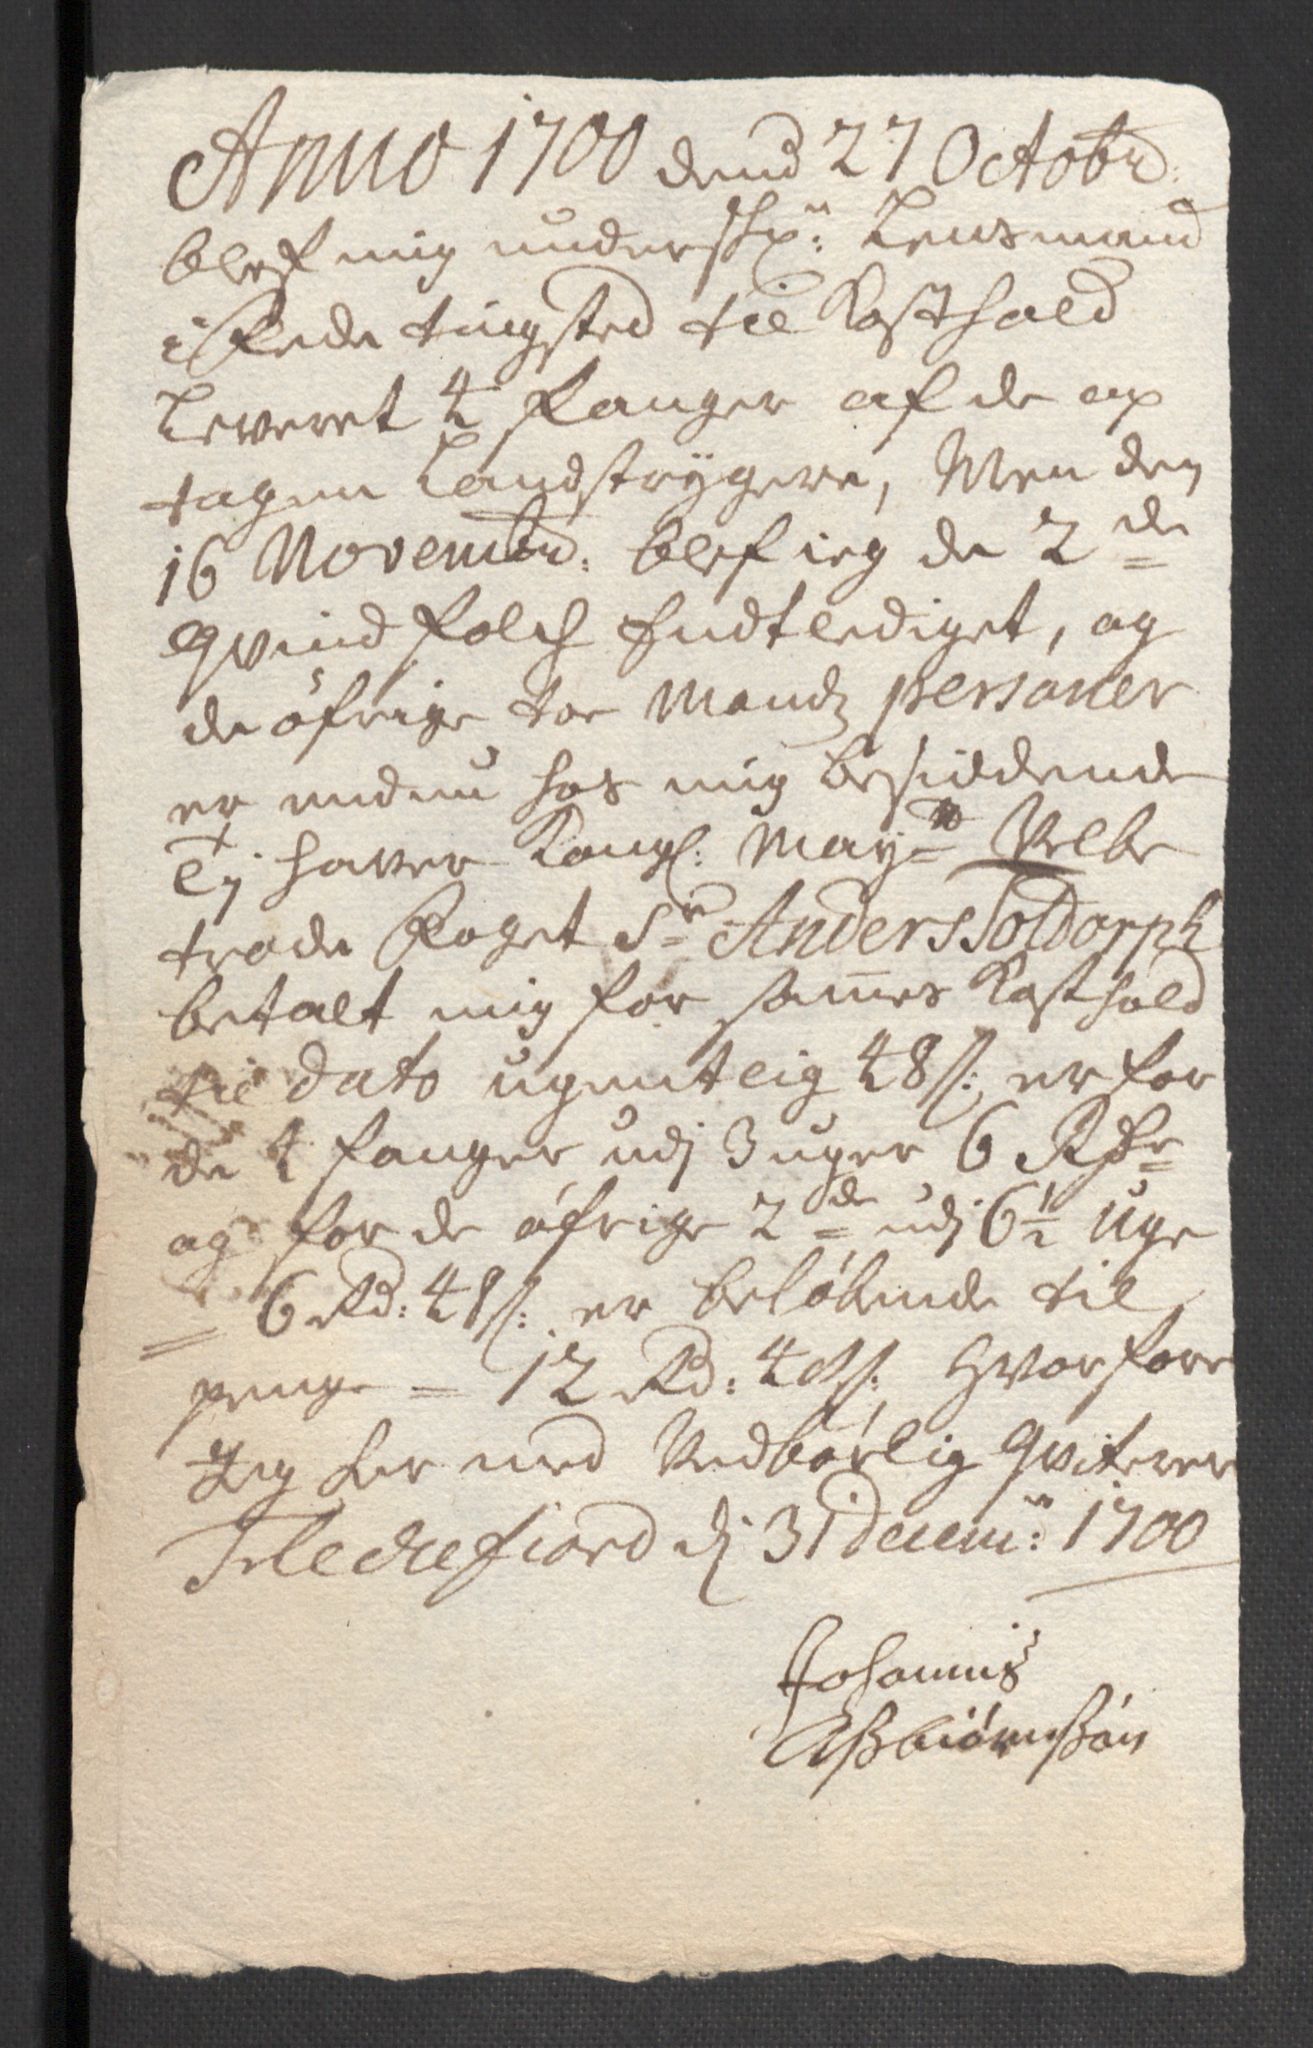 Anno 1700 dend 27 Octobr:
blef mig underskr: Lensmand
i Fede tingsted til Kosthold
Leveret 4 Fanger af de op
tagen Landstrygere, Men den
16 Novembr: blef ieg de 2de
Qvindfolch Endtlediget, og
de öfrige toe Mands personer
er endnu hos mig besiddende
Ej haver Kongl: Mayts Velbe
trode Foget Sr Anders Toldorph
betalt mig for sammes Kosthold
til dato ugentlig 48 s: er for
de 4 fanger udj 3 uger 6 Rdr
og for de öfrige 2de udj 6½ Uge
6 Rd: 48 s: er belöbende til
penge = 12 Rd: 48 s: Hvorfore
Jeg her med Vedbörlig Qviterer
Fleckefiord dj 31 decem: 1700
Johannis
Aßbiörnßön